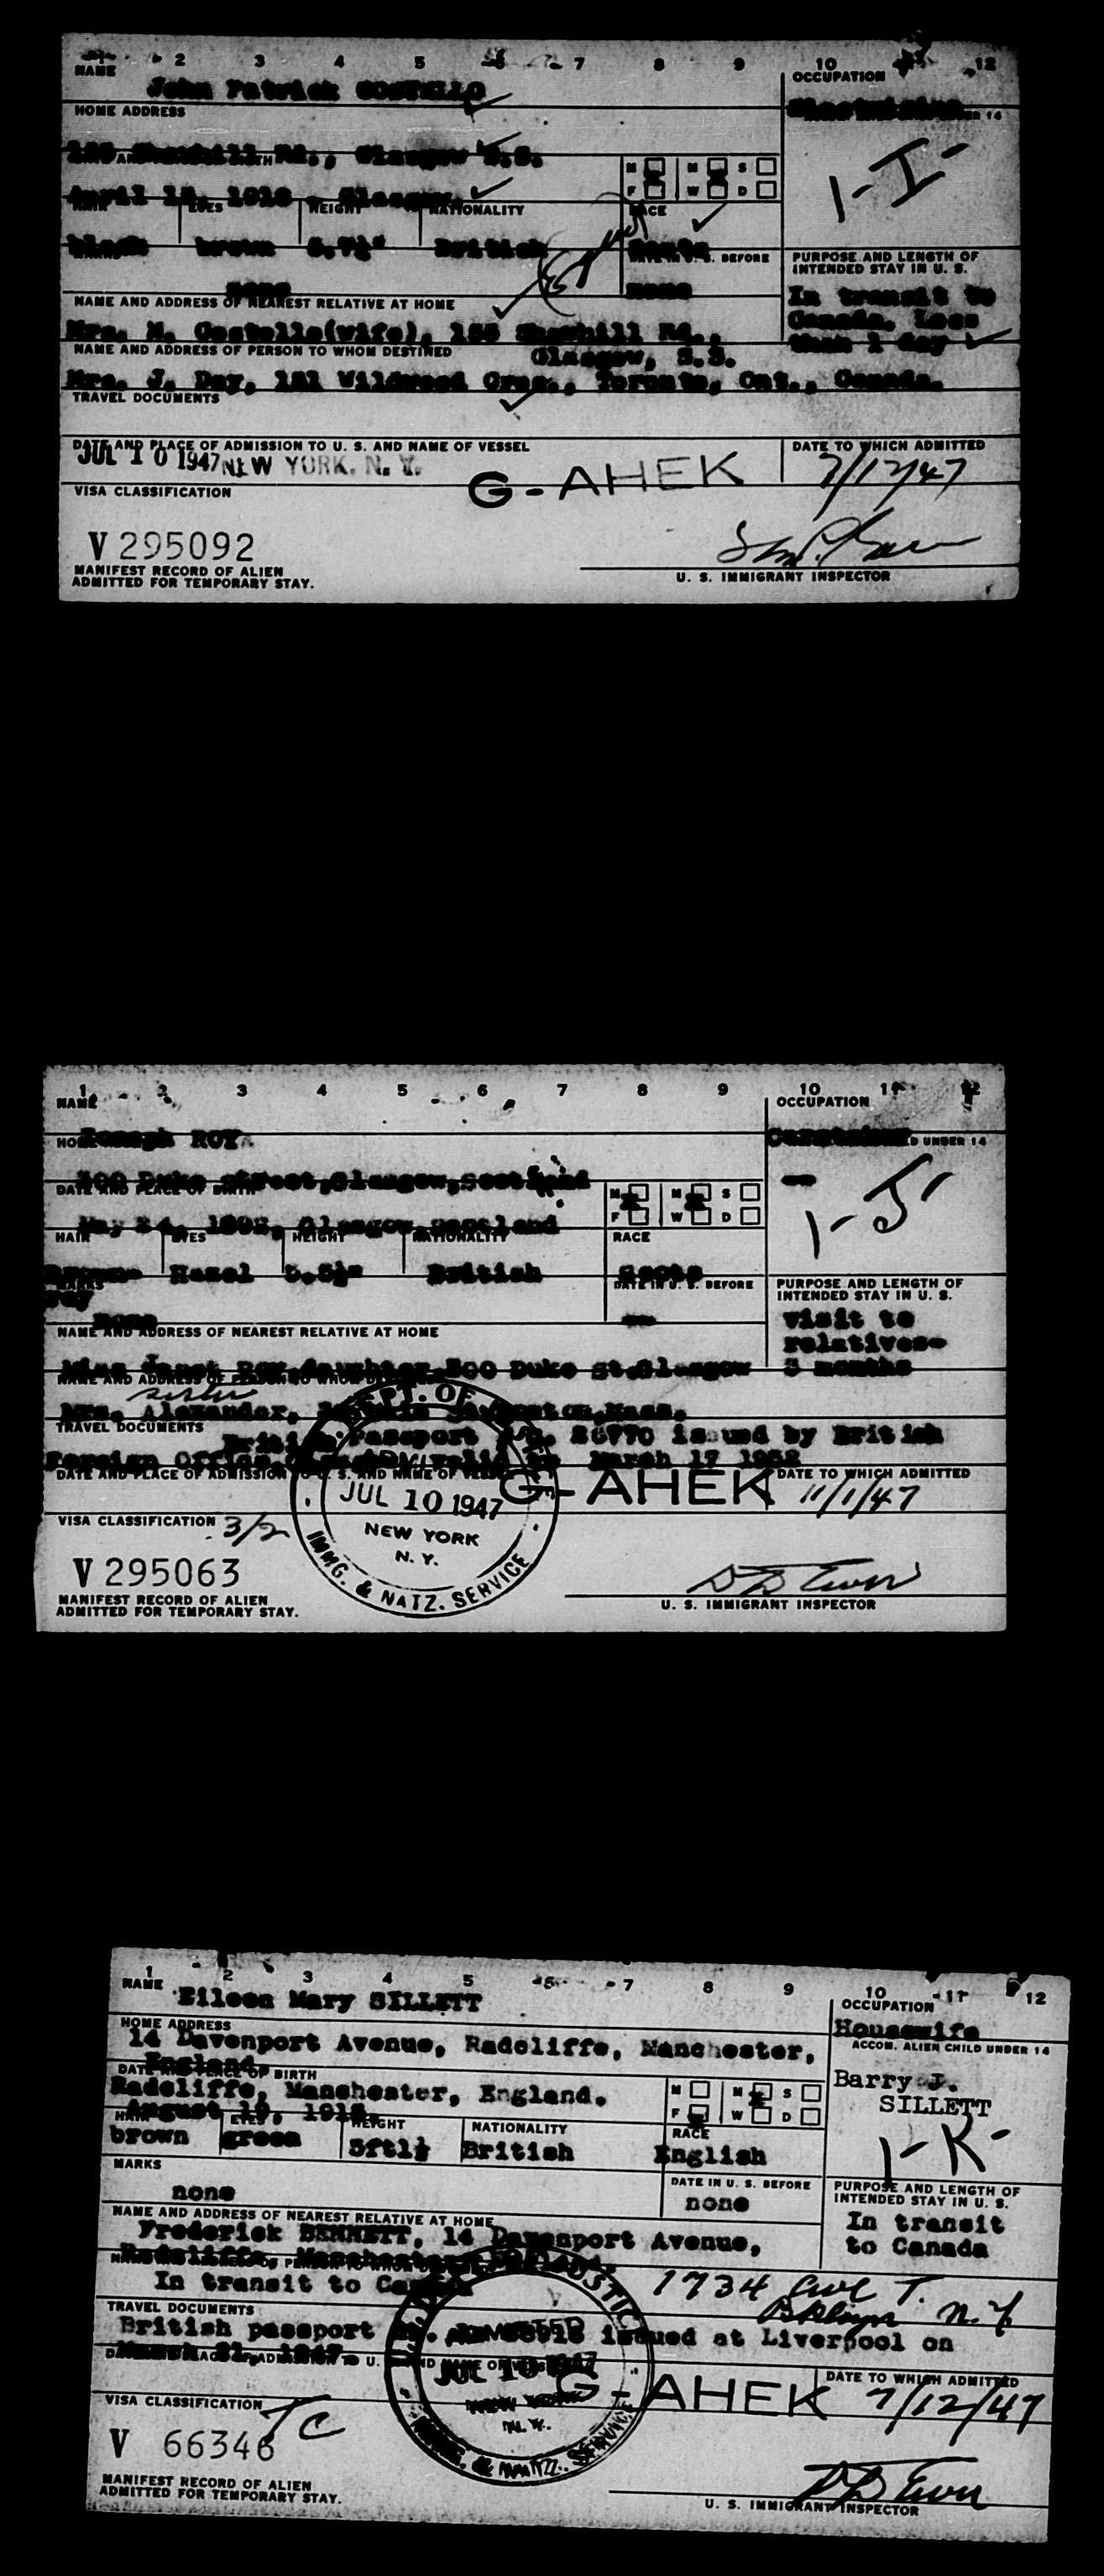 1 2 3 4 5 6 7 8 9 10 11 12
NAME
John Patrick COSTELLO
OCCUPATION
HOME ADDRESS
Rd., Glasgow
April 1918, Glasgow
M M S
F W D
1-I-
EYES HEIGHT NATIONALITY RACE
black brown British
DATE IN U. S. BEFORE
none none
PURPOSE AND LENGTH OF
INTENDED STAY IN U. S.
In transit to
Canada. Less
than 1 day
NAME AND ADDRESS OF NEAREST RELATIVE AT HOME
Mrs. M. Costello(wife), Rd.,
Glasgow, S.S.
NAME AND ADDRESS OF PERSON TO WHOM DESTINED
Mrs. J. Day, 151 Wildwood Cres., Toronto, Ont., Canada.
TRAVEL DOCUMENTS
DATE AND PLACE OF ADMISSION TO U. S. AND NAME OF VESSEL
JUL 10 1947 NEW YORK. N. Y.
G-AHEK
DATE TO WHICH ADMITTED
7/12/47
VISA CLASSIFICATION
V 295092
MANIFEST RECORD OF ALIEN
ADMITTED FOR TEMPORARY STAY.
U. S. IMMIGRANT INSPECTOR
1 2 3 4 5 6 7 8 9 10 11 12
NAME
Joseph ROY
OCCUPATION
500 Duke street,Glasgow,Scotland
DATE AND PLACE OF BIRTH
May Glasgow,Scotland
M M S
F W D
1-J-
HAIR EYES HEIGHT NATIONALITY RACE
Brown- Hazel British
DATE IN U. S. BEFORE
none
PURPOSE AND LENGTH OF
INTENDED STAY IN U. S.
visit to
relatives-
3 months
NAME AND ADDRESS OF NEAREST RELATIVE AT HOME
Miss Janet Roy daughter 500 Duke st.Glasgow
sister
Mrs. Alexander, Mass.
TRAVEL DOCUMENTS
British Passport 26770 issued by British
Foreign Office, valid March 17 1952
DATE AND PLACE OF ADMISSION TO U. S. AND NAME OF VESSEL
DEPT. OF
JUL 10 1947
NEW YORK
N. Y.
IMMG. & NATZ. SERVICE
G-AHEK
DATE TO WHICH ADMITTED
11/1/47
VISA CLASSIFICATION 3/2
V 295063
MANIFEST RECORD OF ALIEN
ADMITTED FOR TEMPORARY STAY.
U. S. IMMIGRANT INSPECTOR
1 2 3 4 5 6 7 8 9 10 11 12
NAME
Eileen Mary SILLETT
OCCUPATION
Housewife
HOME ADDRESS
14 Davenport Avenue, Radcliffe, Manchester,
England.
ACCOM. ALIEN CHILD UNDER 14
Barry J.
SILLETT
DATE AND PLACE OF BIRTH
Radcliffe, Manchester, England.
August 19,
M M S
F W D
1-K-
HAIR EYES HEIGHT NATIONALITY RACE
brown green 5ft1½ British English
MARKS
none
DATE IN U. S. BEFORE
none
PURPOSE AND LENGTH OF
INTENDED STAY IN U. S.
In transit
to Canada
NAME AND ADDRESS OF NEAREST RELATIVE AT HOME
Frederick BENNETT, 14 Davenport Avenue,
Radcliffe, Manchester, England.
In transit to Canada
1734 Ave T.
Bklyn N.Y
TRAVEL DOCUMENTS
British passport issued at Liverpool on
March 31, 1947.
ADMITTED
JUL 10 1947
NEW YORK
N. Y.
G-AHEK
DATE TO WHICH ADMITTED
7/12/47
VISA CLASSIFICATION TC
V 66346
MANIFEST RECORD OF ALIEN
ADMITTED FOR TEMPORARY STAY.
U. S. IMMIGRANT INSPECTOR